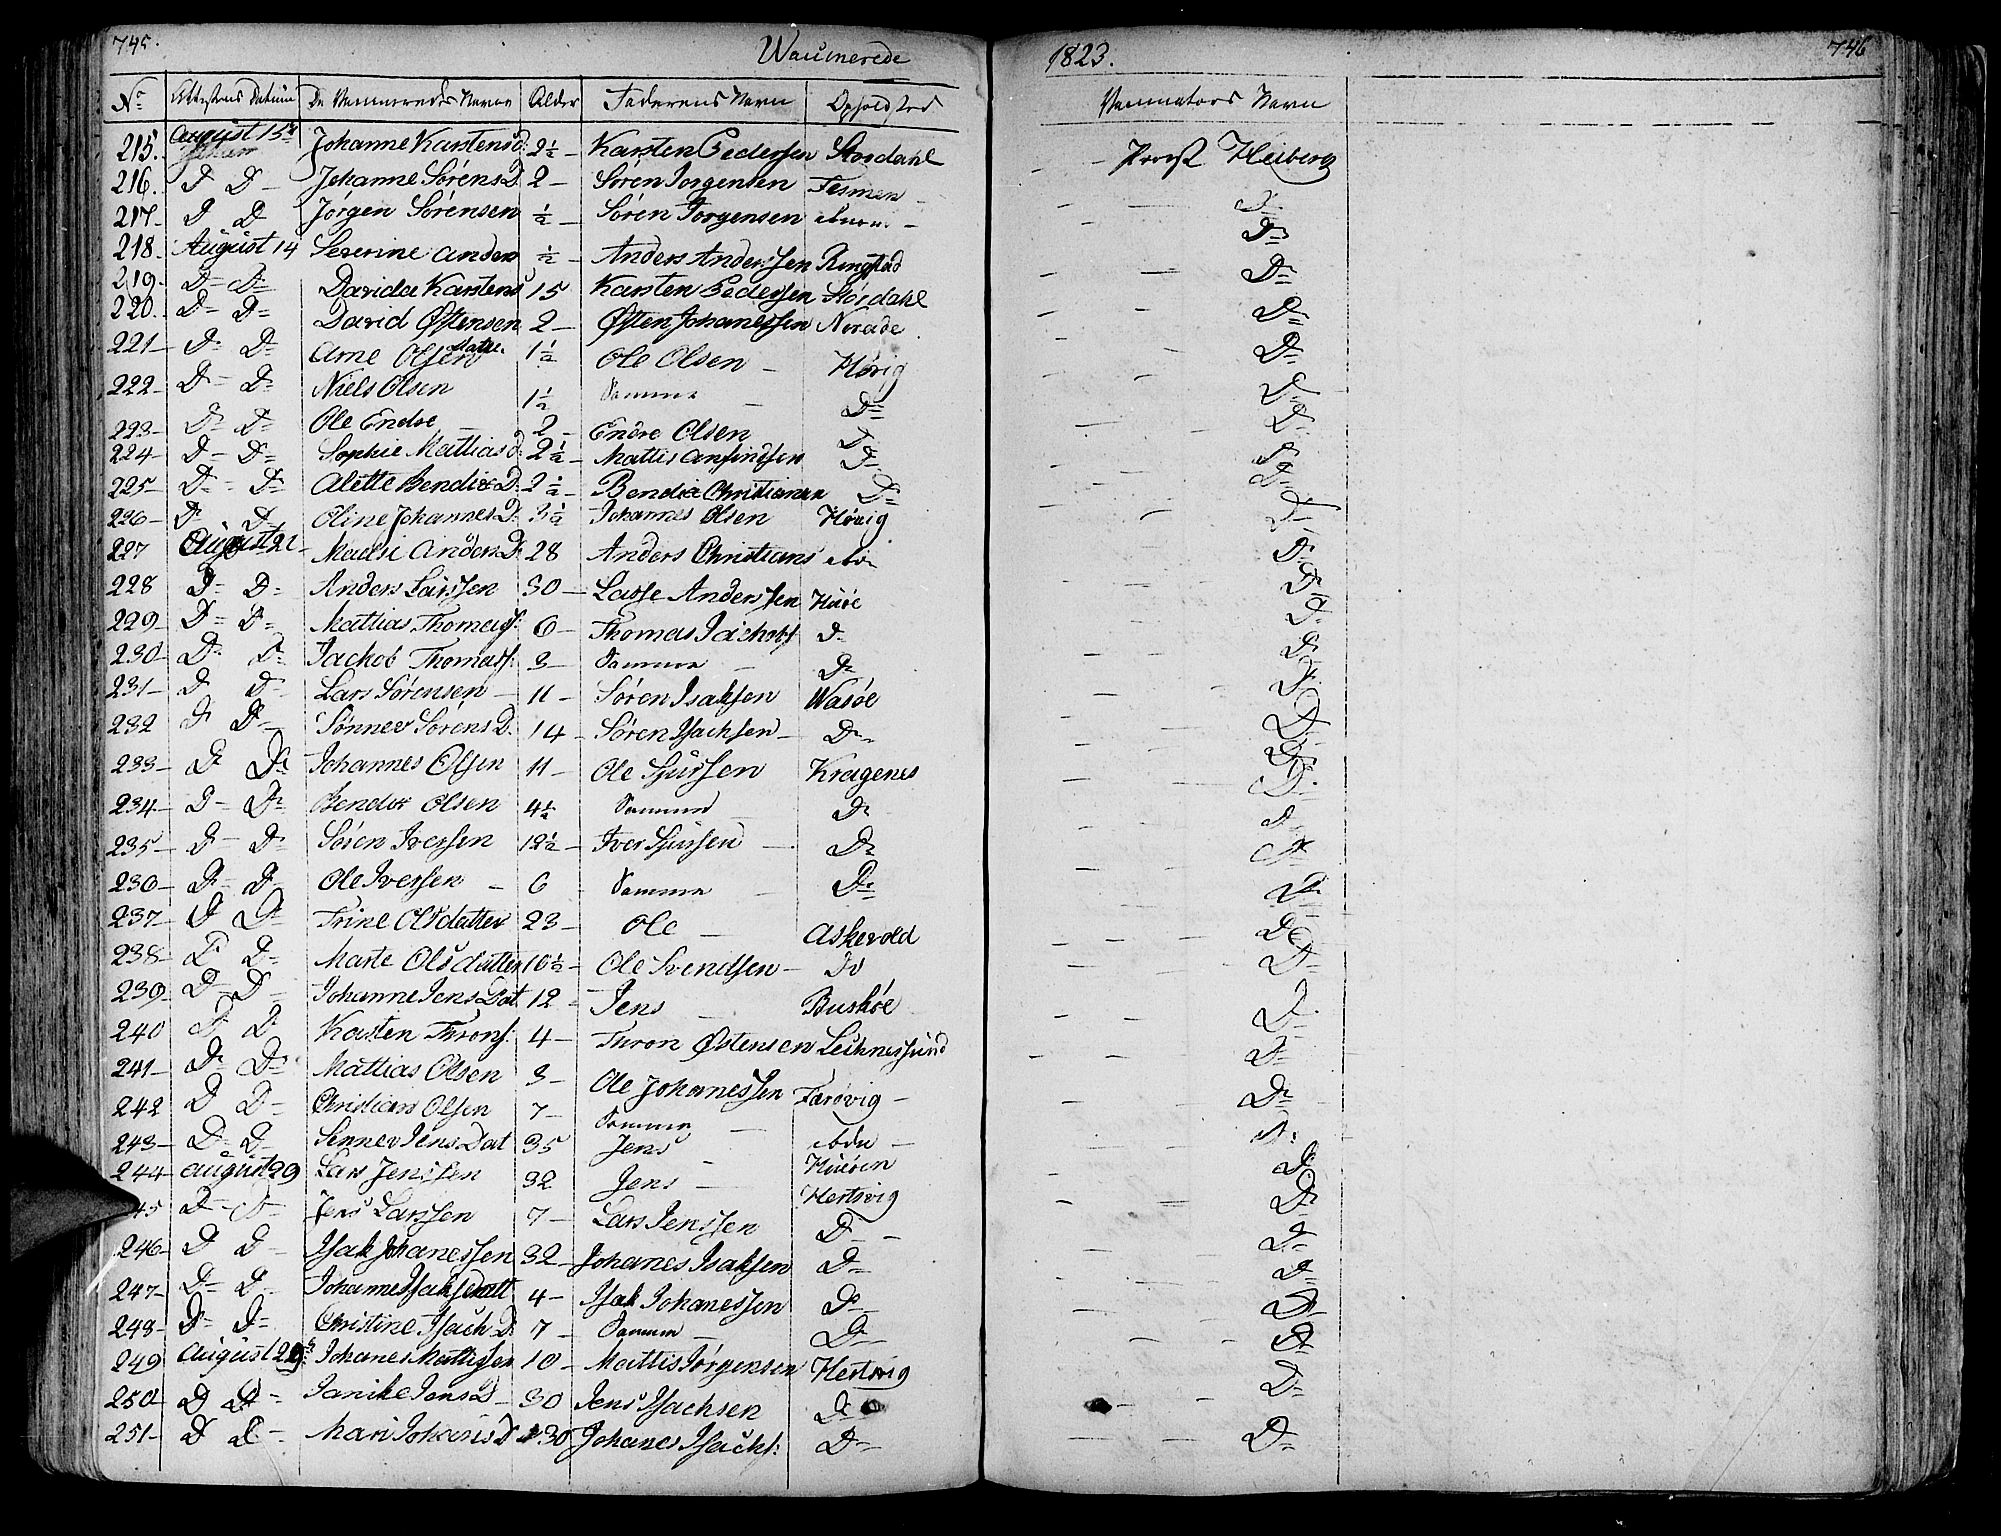 745. Waccinerede 1823. 746
No Attestens Datum De Vaccineredes Navne Alder Faderens Navn Opholdsted Vaccinators Navn
215. August 15 Johanne Karstensd: 2½ Karsten Pedersen Stordahl Provst Heiberg
216. D D Johanne SørensD. 2 Søren Jorgensen Tesmen D
217 D D Jørgen Sörensen ½ Søren Jorgensen D
218. August 14 Severine Anders ½ Anders Anderssen Ringstad D
219. D D Davida Karstens 15 Karsten Pedersen Stördahl D
220. D D David Østensen 2 Østen Johanessen D
221 D D Arne Olsen 1½ Ole Olsen Hövig D
222 D D Niels Olsen 1½ Samme D D
223 D D Ole Endre 2 Endre Olsen D D
224 D D Sophie Mattiasd: 2½ Mattis D D
225 D D Alette BendixD: 2½ Bendix Christiansen D D
226 D D Oline JohannesD. 3½ Johannes Olsen Hövig D
227 August 21 AndersD. 28 Anders Christians D
228 D D Anders Larssen 30 Lasse Anderssen Husöe D
229 D D Mattias Thomass: 6 Thomas Jachobs D D
230 D D Jackob Thomass: 3 Samme D D
231 D D Lars Sørensen 11 Søren Isaksen Wasöe D
232 D D Sønnev SørensD. 14 Søren Isachsen D D
233 D D Johannes Olsen 11 Ole Sjursen Kragenes D
234 D D Bendix Olsen 4½ Samme D D
235 D D Sören Iversen 12½ Iver Sjursen D D
236 D D Ole Iversen 6 Samme D D
237 D D Trine Olsdatter 23 Ole Askevold D
238 D D Marte Olsdatter 10½ Ole Svendsen Do D
239 D D Johanne Jens Dat 12 Jens Buskøe D
240 D D Karsten Throns: 4 Thron Østensen D
241 D D Mattias Olsen 3 Ole Johanessen Færövig D
242 D D Christian Olsen 7 Samme D
243 D D Sennev Jens Dat 35 Jens D
244 August 29 Lars Jenssen 32 Jens Hertsvig D
45 D D Jens Larssen 7 Lars Jenssen D D
246 D D Isak Johanessen 32 Johanes Isaksen D D
247 D D Johanne Isaks Datt 4 Isak Johanessen D D
248 D D Christine Isach D. 7 Samme D D
249 August 29 Johanes Mattissen 10 Mattis Jörgensen Hertsvig D
250 D D Janike Jens D 30 Jens Isachsen D D
251 D D Mari Johanis D 30 Johanes Isachs: D D